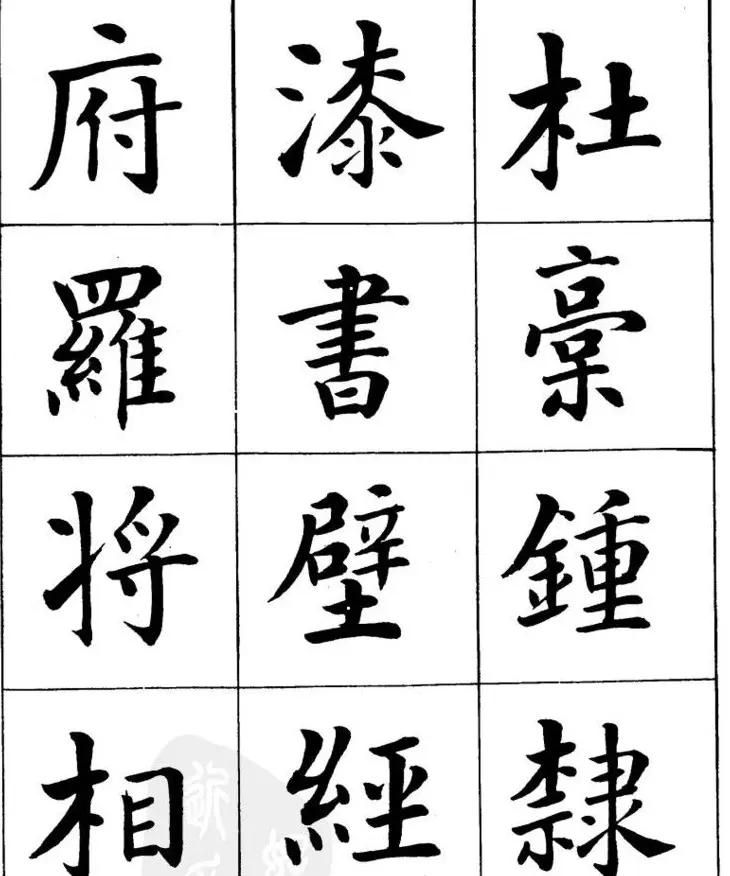 杜稾鍾隸
漆書壁經
府羅将相